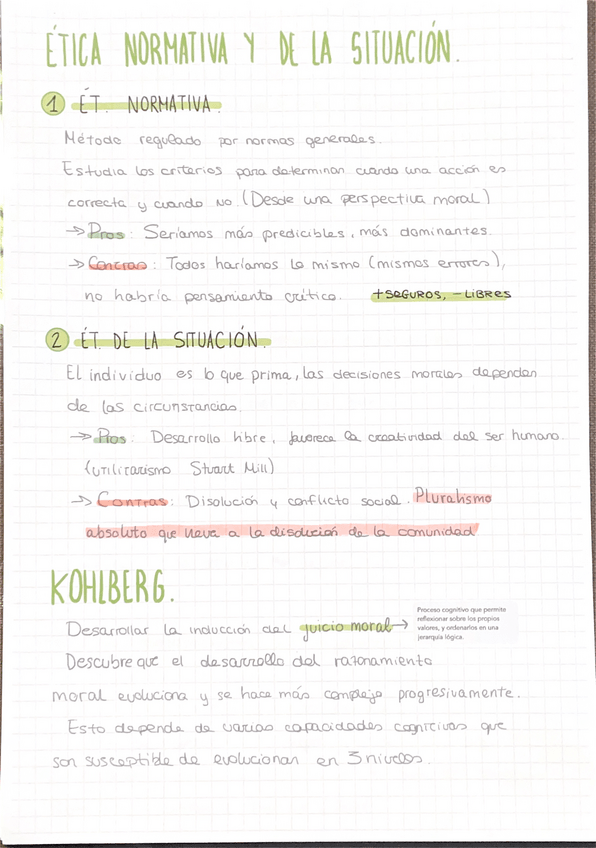 ÉTICA NORMATIVA Y DE LA SITUACIÓN.
1 ÉT. NORMATIVA.
Método regulado por normas generales.
Estudia los criterios para determinar cuando una acción es
correcta y cuando no. (Desde una perspectiva moral)
→ Pros: Seríamos más predicibles, más dominantes.
→ Contras: Todos haríamos lo mismo (mismos errores),
no habría pensamiento crítico. +SEGUROS, -LIBRES
2 ÉT. DE LA SITUACIÓN.
El individuo es lo que prima, las decisiones morales dependen
de las circunstancias.
→ Pros: Desarrollo libre, favorece la creatividad del ser humano.
(utilitarismo Stuart Mill)
→ Contras: Disolución y conflicto social. Pluralismo
absoluto que lleva a la disolución de la comunidad
KOHLBERG.
Desarrollar la inducción del juicio moral→
Proceso cognitivo que permite
reflexionar sobre los propios
valores, y ordenarlos en una
jerarquía lógica.
Descubre que el desarrollo del razonamiento
moral evoluciona y se hace más complejo progresivamente.
Esto depende de varias capacidades cognitivas que
son susceptible de evolucionar en 3 niveles.